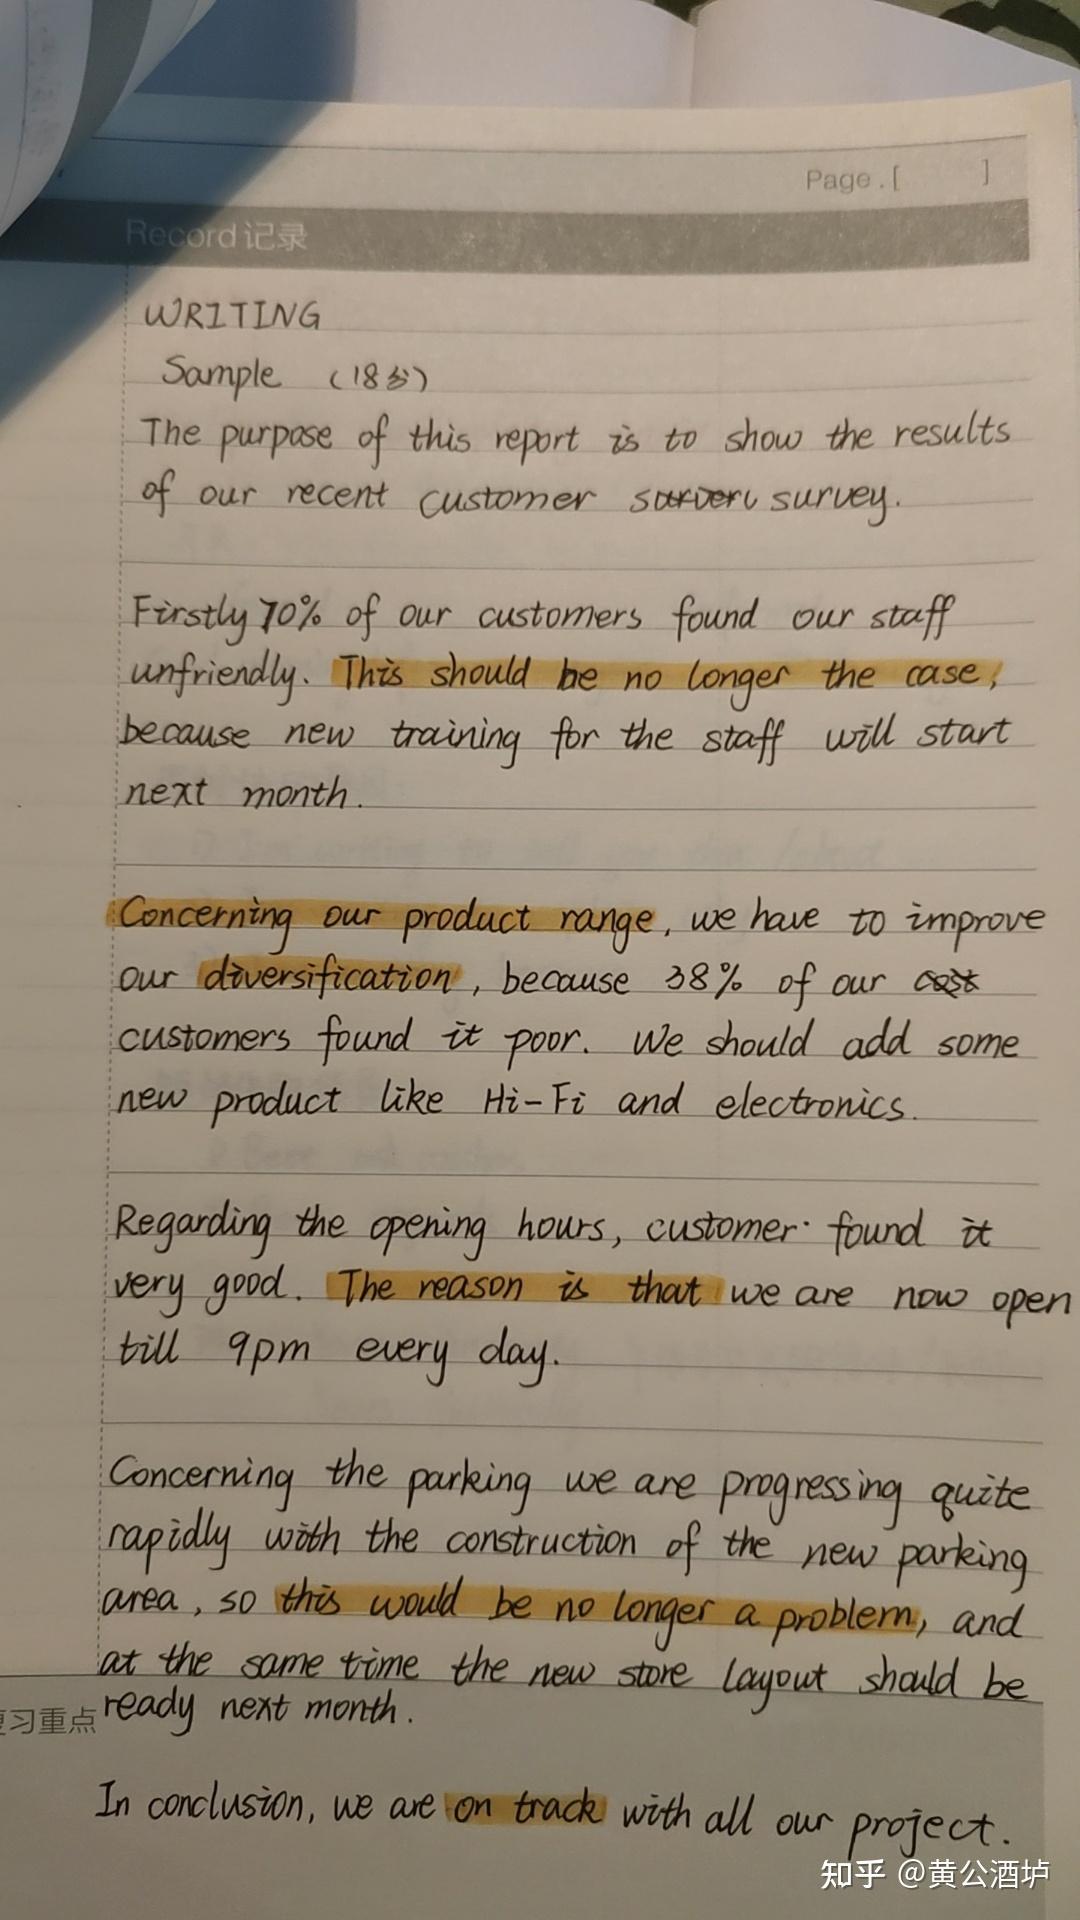 Page.[ ]
Record记录
WRITING
Sample (18分)
The purpose of this report is to show the results
of our recent customer survey.
Firstly 70% of our customers found our staff
unfriendly. This should be no longer the case,
because new training for the staff will start
next month.
Concerning our product range, we have to improve
our diversification, because 38% of our
customers found it poor. We should add some
new product like Hi-Fi and electronics.
Regarding the opening hours, customer found it
very good. The reason is that we are now open
till 9pm every day.
Concerning the parking we are progressing quite
rapidly with the construction of the new parking
area, so this would be no longer a problem, and
at the same time the new store layout should be
ready next month.
习重点
In conclusion, we are on track with all our project.
知乎 @黄公酒垆